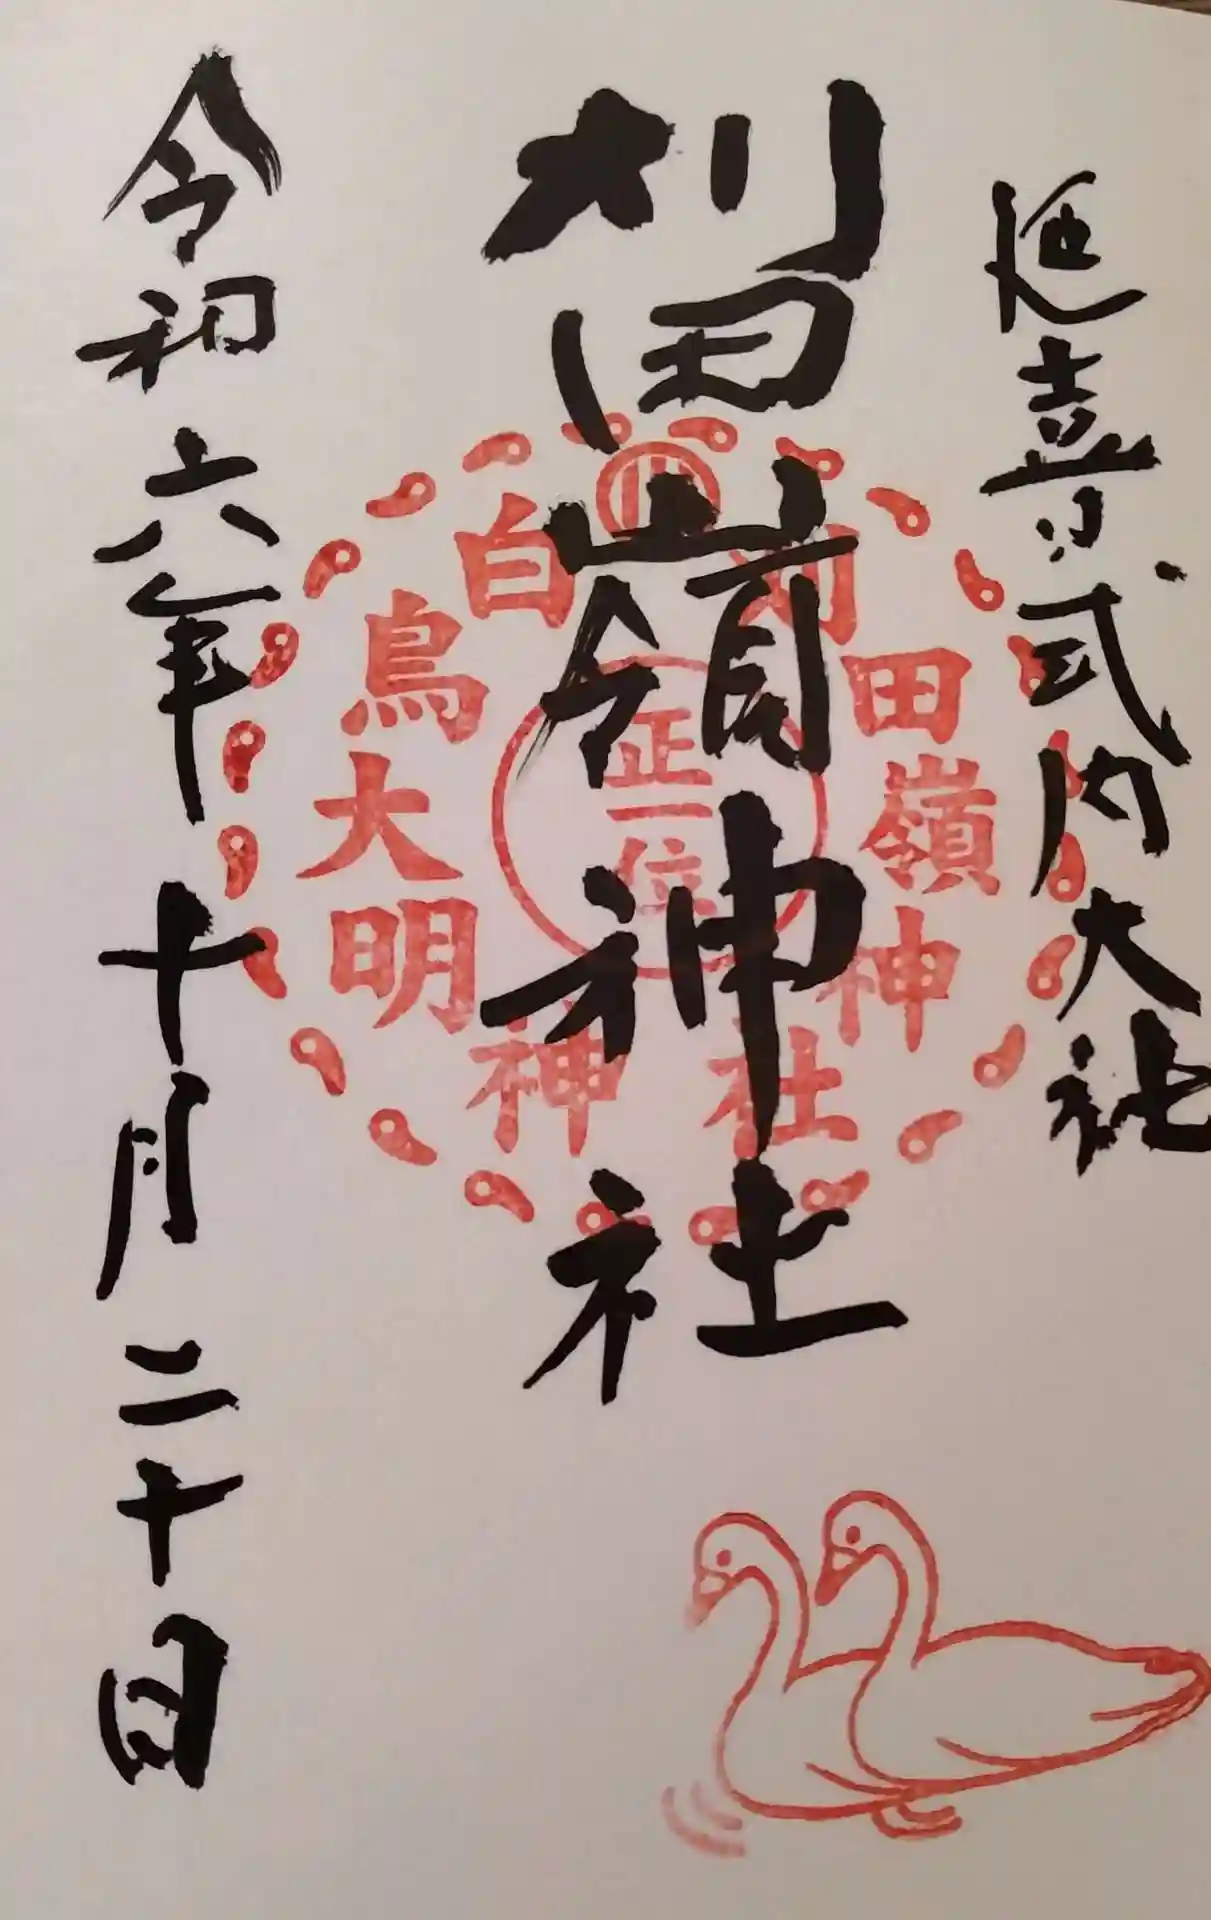 延喜式内大社
刈田嶺神社
令和六年十月二十日
刈田嶺神社
白鳥大明神
正一位